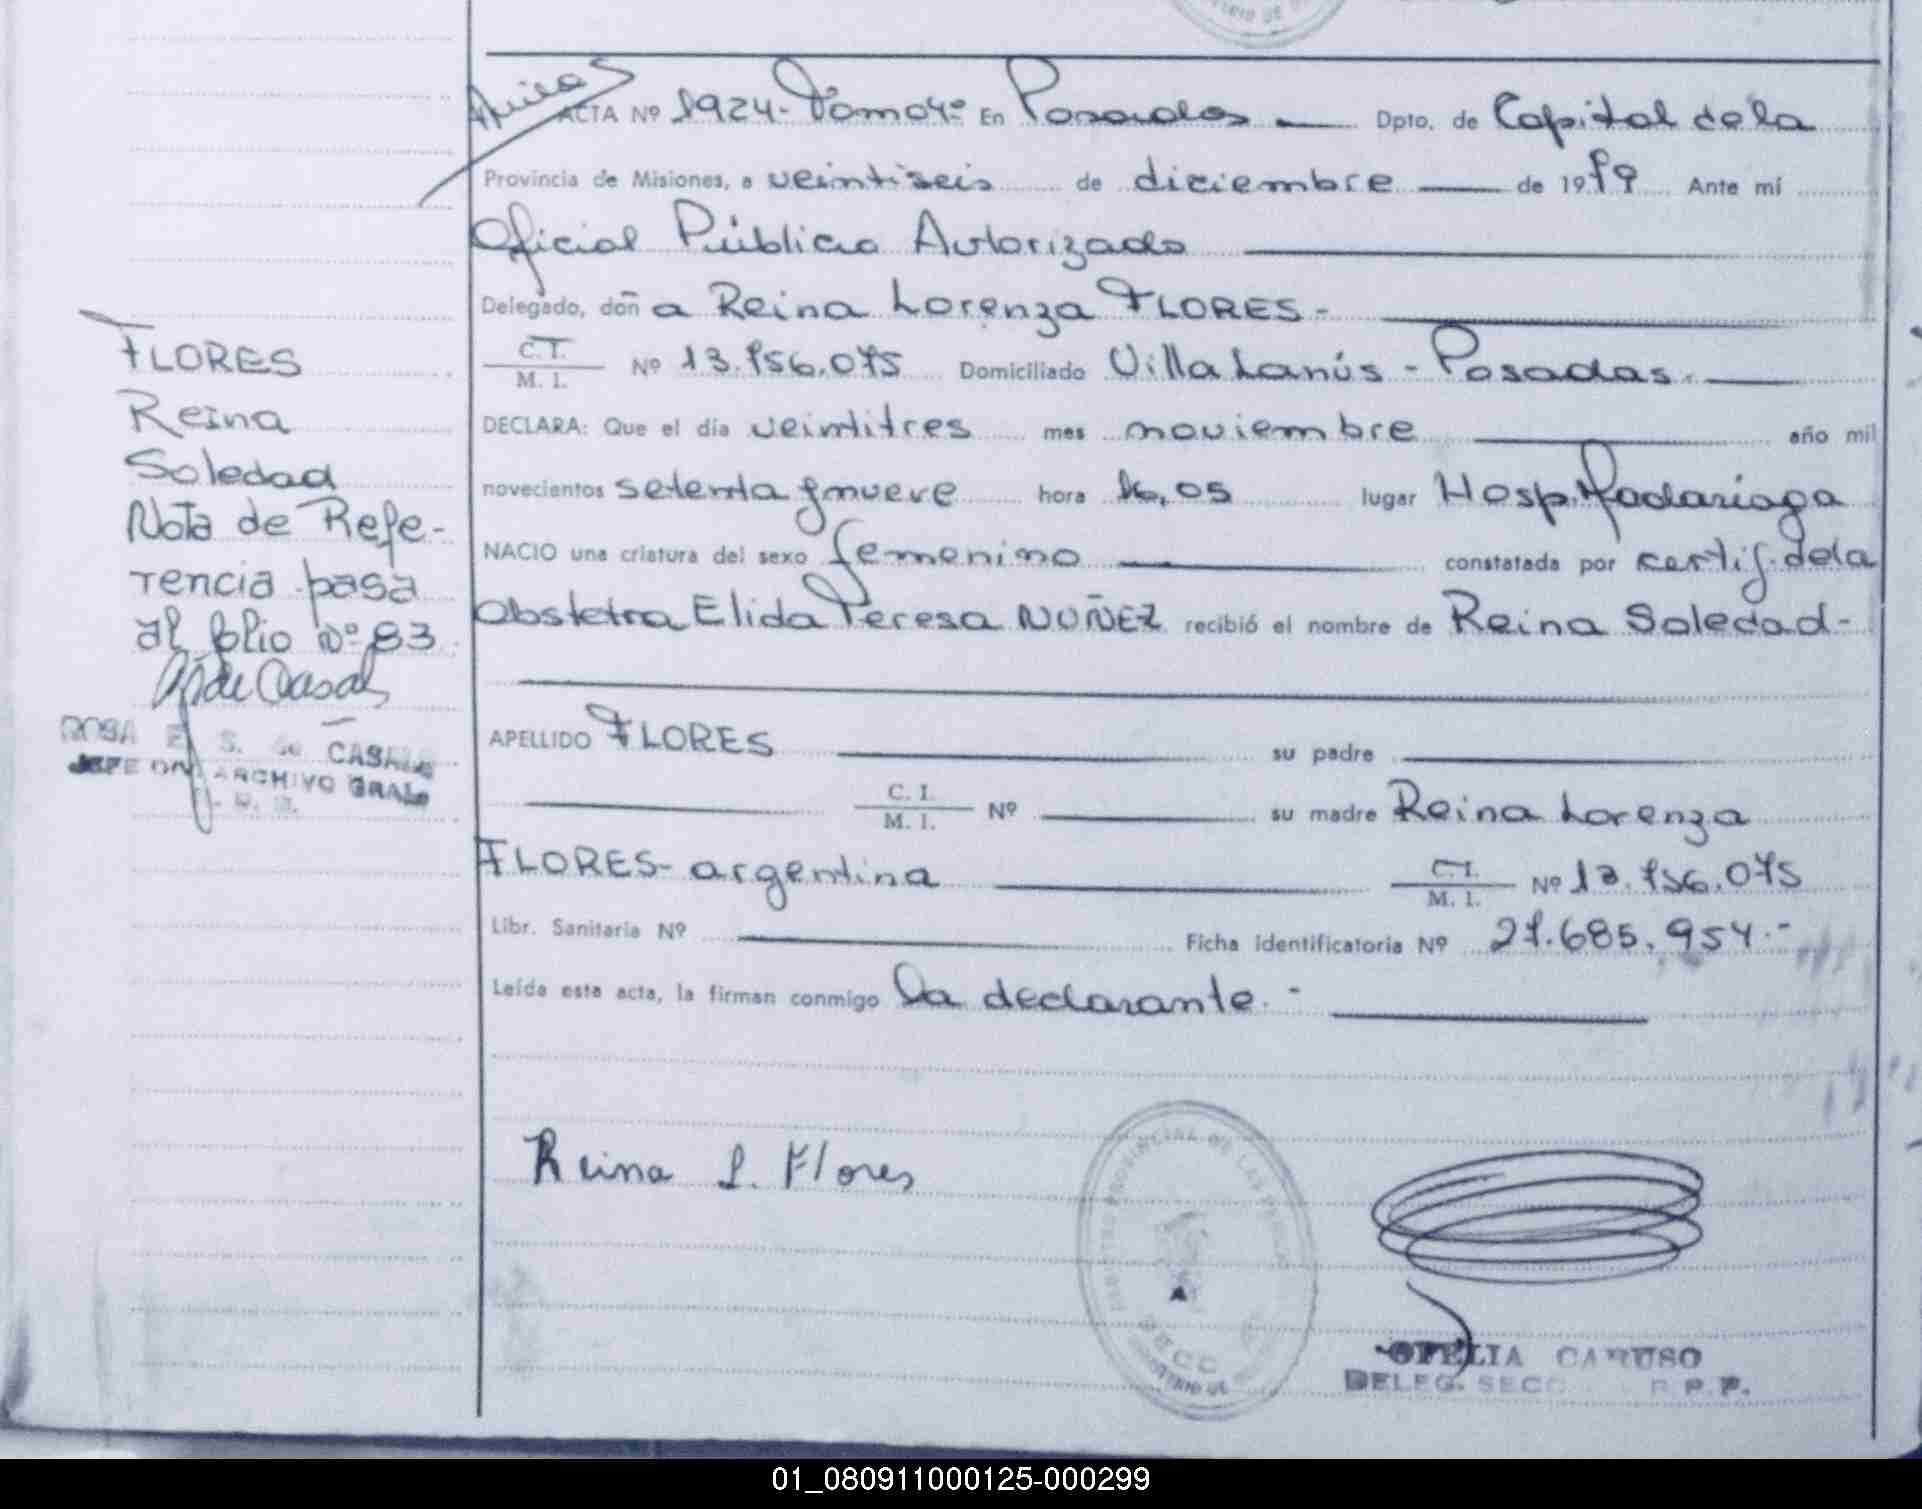 ACTA Nº 1924- Tomo 4º En Posadas Dpto. de Capital de la
Provincia de Misiones, a veintiseis de diciembre de 1979 Ante mí
Oficial Público Autorizado
Delegado, doña Reina Lorenza FLORES-
C.I. M. I. Nº 13.756.075 Domiciliado Villa Lanús - Posadas.
DECLARA: Que el día veintitres mes noviembre año mil
novecientos setenta y nueve hora 16,05 lugar Hosp. Madariaga
NACIO una criatura del sexo femenino constatada por certif. de la
Obstetra Elida Teresa NUÑEZ recibió el nombre de Reina Soledad-
APELLIDO FLORES su padre
C. I. M. I. Nº su madre Reina Lorenza
FLORES- argentina C.I. M. I. Nº 13.756.075
Libr. Sanitaria Nº Ficha Identificatoria Nº 27.685.954.-
Leída esta acta, la firman conmigo la declarante.-
Reina L. Flores
OFELIA CARUSO
DELEG. SECC. R. P. P.
FLORES
Reina
Soledad
Nota de Refe-
rencia pasa
al folio nº 83
ROSA E. S. de CASALS
JEFE DIV ARCHIVO GRAL
01_080911000125-000299